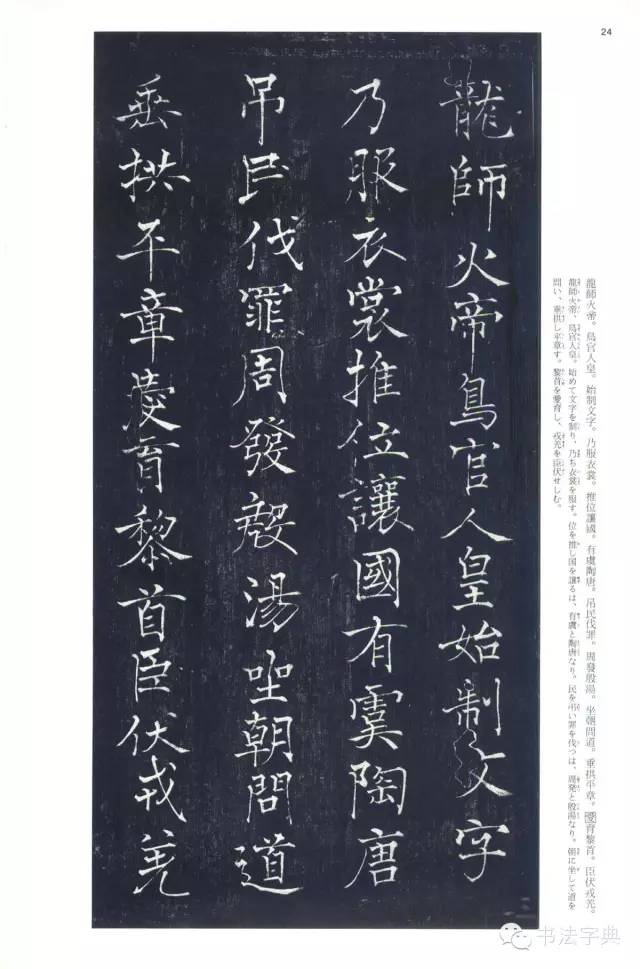 24
龍師火帝鳥官人皇始制文字
乃服衣裳推位讓國有虞陶唐
吊民伐罪周發殷湯坐朝問道
垂拱平章愛育黎首臣伏戎羌
龍師火帝。鳥官人皇。始制文字。乃服衣裳。推位讓國。有虞陶唐。吊民伐罪。周發殷湯。坐朝問道。垂拱平章。愛育黎首。臣伏戎羌。
龍師火帝、鳥官人皇。始めて文字を制り、乃ち衣裳を服す。位を推し国を讓るは、有虞と陶唐なり。民を弔い罪を伐つは、周発と殷湯なり。朝に坐して道を
問い、垂拱し平章す。黎首を愛育し、戎羌を臣伏せしむ。
书法字典